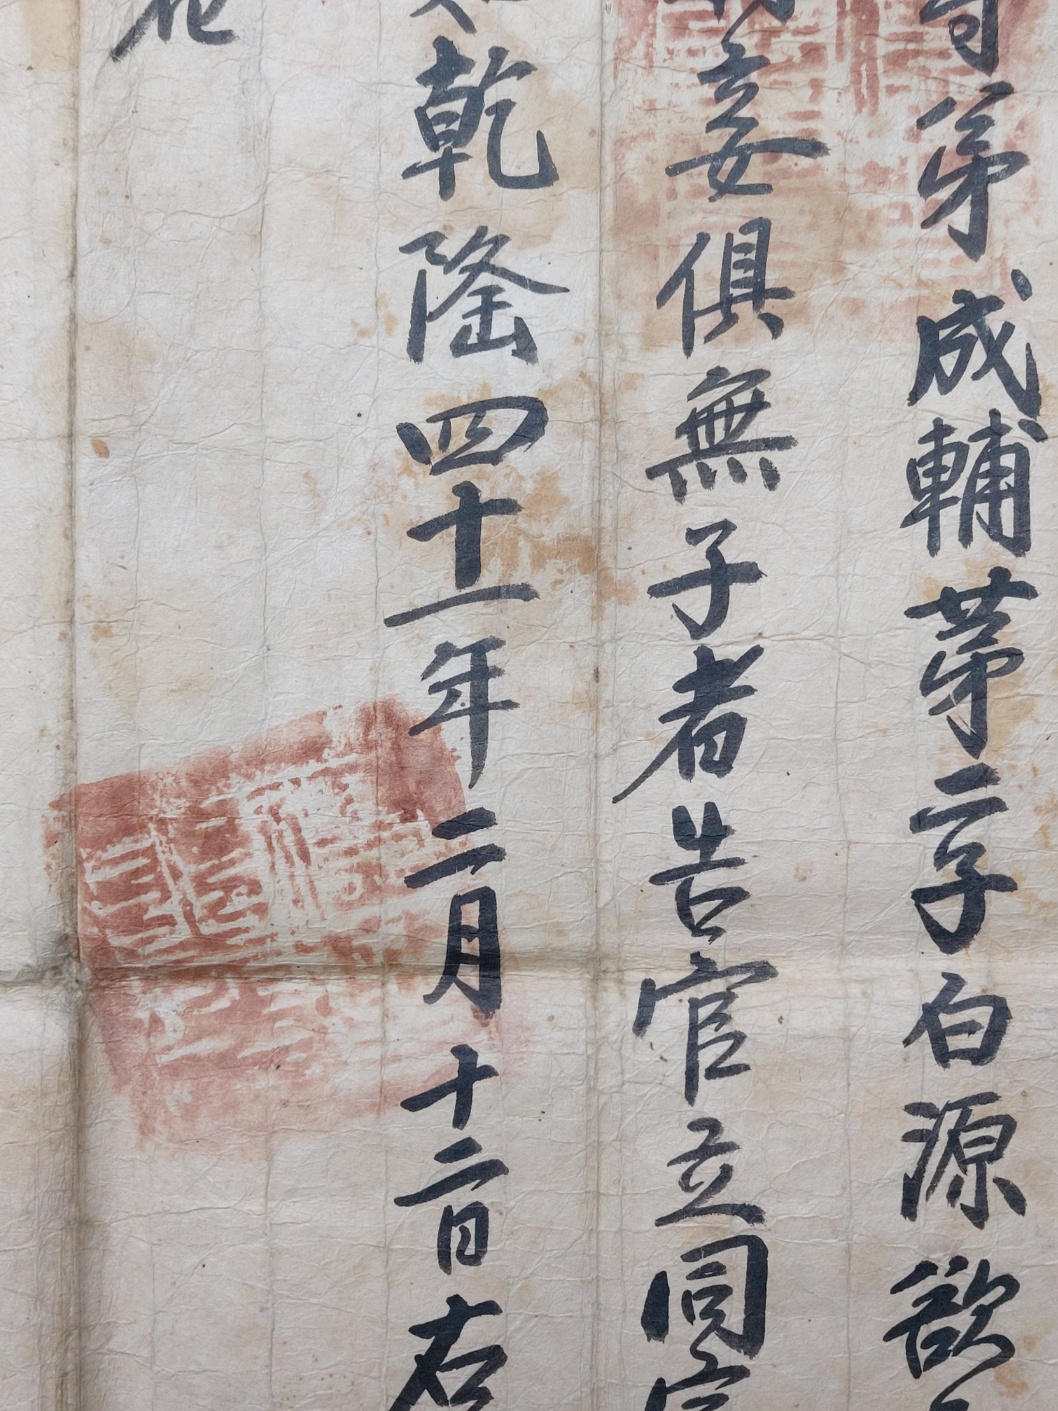 第成輔第二子白源欲
妾俱無子者告官立同宗
乾隆四十一年二月十二日右